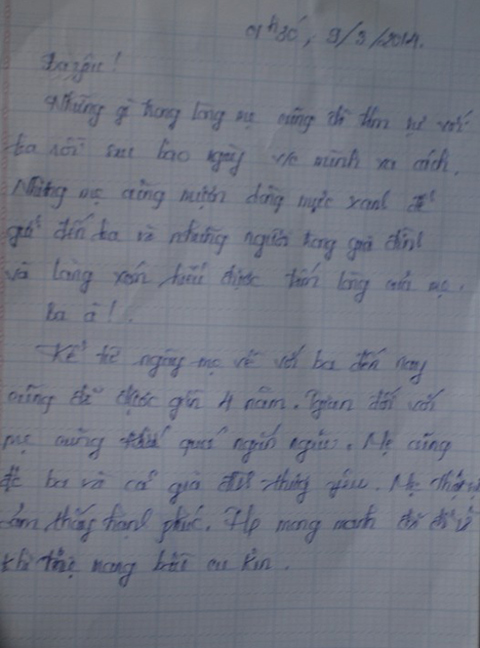 01h30', 9/3/2014.
Ba yêu!
Những gì trong lòng mẹ cũng đã tâm sự với
ba rồi sau bao ngày v/c mình xa cách.
Nhưng mẹ cũng mượn dòng mực xanh để
gửi đến ba và những người trong gia đình
và làng xóm hiểu được tấm lòng của mẹ.
Ba à!
Kể từ ngày mẹ về với ba đến nay
cũng đã được gần 4 năm. gian đối với
mẹ cũng quá ngắn ngủi. Mẹ cũng
đc ba và cả gia đình thương yêu. Mẹ thấy
hạnh phúc. Hp mong manh đã
khi mang